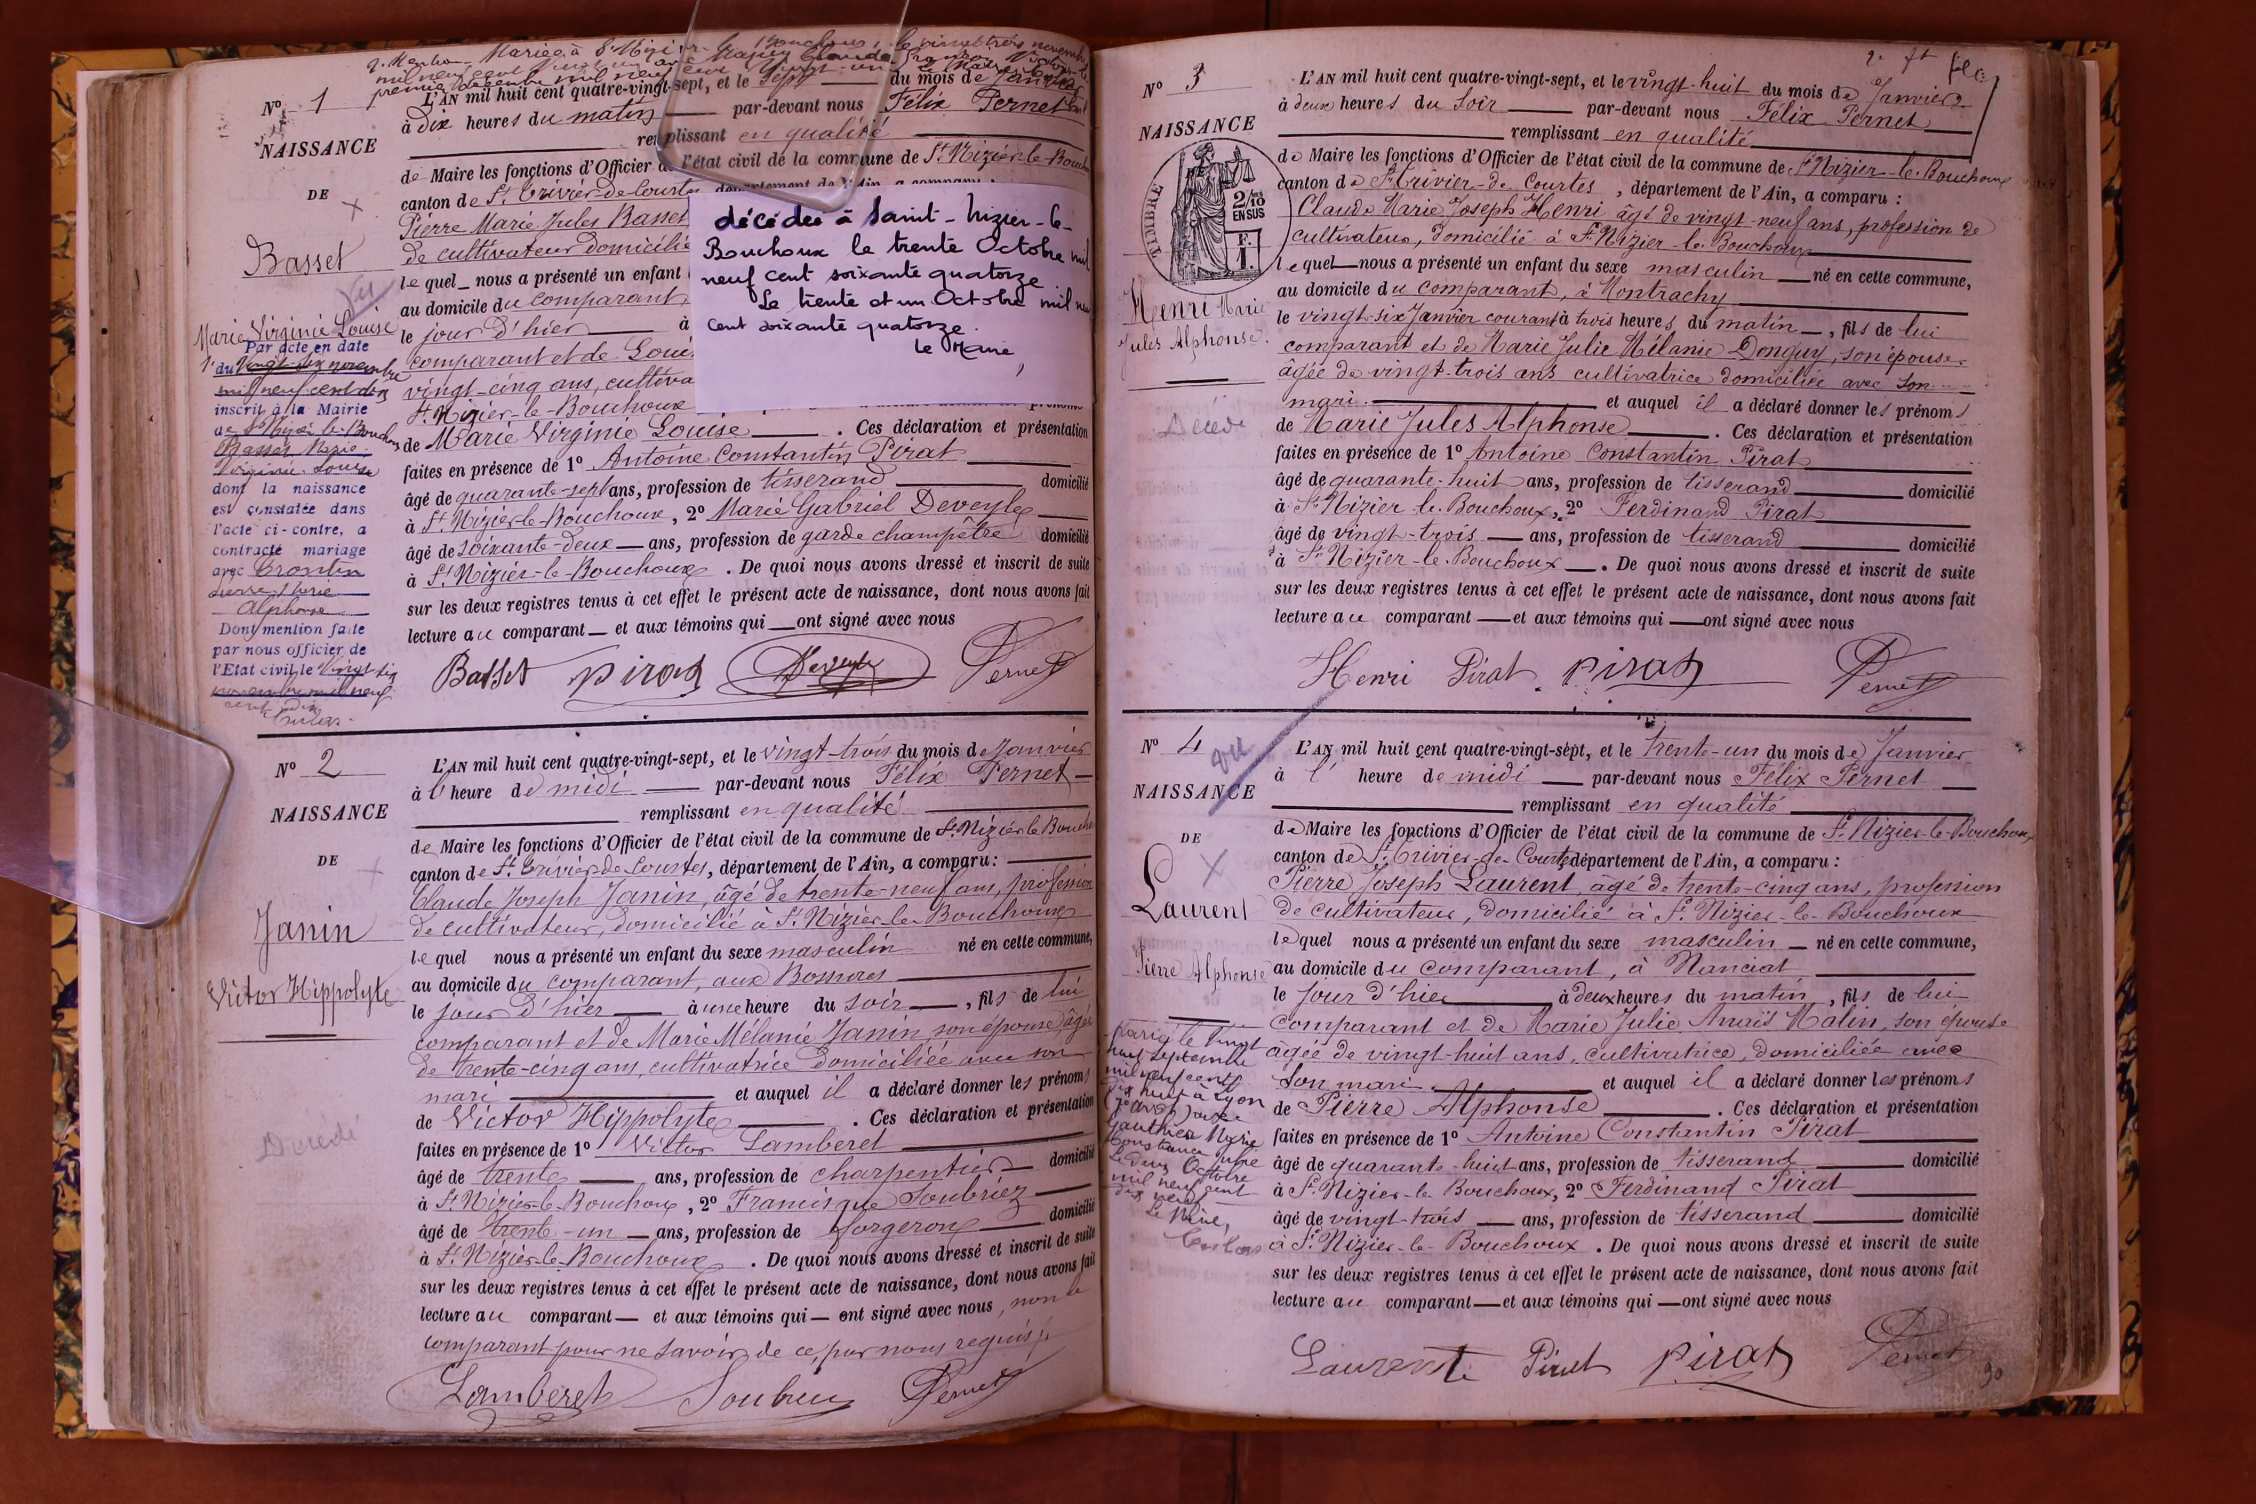 N° 1
NAISSANCE
DE
Basset
vu
Marie Virginie Louise
Par acte en date
du vingt-six novembre
mil neuf cent dix
inscrit à la Mairie
de St Nizier-le-Bouchoux
Basset Marie
Virginie Louise
dont la naissance
est constatée dans
l'acte ci-contre, a
contracté mariage
avec
Pierre Marie
Alphonse
Dont mention faite
par nous officier de
l'Etat civil, le vingt-six
novembre mil neuf
cent dix
L'AN mil huit cent quatre-vingt-sept, et le sept du mois de Janvier
à dix heures du matin par-devant nous Félix Pernet
remplissant en qualité
de Maire les fonctions d'Officier de l'état civil de la commune de St Nizier-le-Bouchoux
canton de St Trivier-de-Courtes département de l'Ain, a comparu :
Pierre Marie Jules Basset
de cultivateur domicilié
lequel nous a présenté un enfant
au domicile du comparant
le jour d'hier à
comparant et de Louise
vingt-cinq ans, cultiva
St Nizier-le-Bouchoux
de Marie Virginie Louise . Ces déclaration et présentation
faites en présence de 1° Antoine Constantin Pirat
âgé de quarante-sept ans, profession de tisserand domicilié
à St Nizier-le-Bouchoux, 2° Marie Gabriel Deveyle
âgé de soixante-deux ans, profession de garde champêtre domicilié
à St Nizier-le-Bouchoux . De quoi nous avons dressé et inscrit de suite
sur les deux registres tenus à cet effet le présent acte de naissance, dont nous avons fait
lecture au comparant et aux témoins qui ont signé avec nous
Basset Pirat Deveyle Pernet
décédée à Saint-Nizier-le-
Bouchoux le trente Octobre mil
neuf cent soixante quatorze.
Le trente et un Octobre mil neuf
cent soixante quatorze.
Le Maire,
N° 2
NAISSANCE
DE
Janin
Victor Hippolyte
Décédé
L'AN mil huit cent quatre-vingt-sept, et le vingt-trois du mois de Janvier
à l'heure de midi par-devant nous Félix Pernet
remplissant en qualité
de Maire les fonctions d'Officier de l'état civil de la commune de St Nizier le Boucho
canton de St Trivier de Courtes, département de l'Ain, a comparu :
Claude Joseph Janin, âgé de trente-neuf ans, profession
de cultivateur, domicilié à St Nizier-le-Bouchoux
lequel nous a présenté un enfant du sexe masculin né en cette commune,
au domicile du comparant, aux
le jour d'hier à une heure du soir, fils de lui
comparant et de Marie Mélanie Janin, son épouse, âgée
de trente-cinq ans, cultivatrice domiciliée avec son
mari et auquel il a déclaré donner les prénoms
de Victor Hippolyte . Ces déclaration et présentation
faites en présence de 1° Victor Lamberet
âgé de trente ans, profession de charpentier domicilié
à St Nizier-le-Bouchoux, 2° Francisque
âgé de trente-un ans, profession de forgeron domicilié
à St Nizier-le-Bouchoux . De quoi nous avons dressé et inscrit de suite
sur les deux registres tenus à cet effet le présent acte de naissance, dont nous avons fait
lecture au comparant et aux témoins qui ont signé avec nous, non le
comparant pour ne savoir, de ce, par nous requis
Lamberet Pernet
N° 3
NAISSANCE
TIMBRE
2/10
EN SUS
F.
1.
Henri Marie
Jules Alphonse.
Décédé
L'AN mil huit cent quatre-vingt-sept, et le vingt-huit du mois de Janvier
à deux heures du soir par-devant nous Félix Pernet
remplissant en qualité
de Maire les fonctions d'Officier de l'état civil de la commune de St Nizier-le-Bouchoux
canton de St Trivier-de-Courtes, département de l'Ain, a comparu :
Claude Marie Joseph Henri âgé de vingt-neuf ans, profession de
cultivateur, domicilié à St Nizier-le-Bouchoux
lequel nous a présenté un enfant du sexe masculin né en cette commune,
au domicile du comparant, à Montrachy
le vingt-six Janvier courant à trois heures du matin, fils de lui
comparant et de Marie Julie Mélanie Donguy, son épouse
âgée de vingt-trois ans cultivatrice domiciliée avec son
mari. et auquel il a déclaré donner les prénoms
de Marie Jules Alphonse . Ces déclaration et présentation
faites en présence de 1° Antoine Constantin Pirat
âgé de quarante-huit ans, profession de tisserand domicilié
à St Nizier-le-Bouchoux, 2° Ferdinand Pirat
âgé de vingt-trois ans, profession de tisserand domicilié
à St Nizier-le-Bouchoux . De quoi nous avons dressé et inscrit de suite
sur les deux registres tenus à cet effet le présent acte de naissance, dont nous avons fait
lecture au comparant et aux témoins qui ont signé avec nous
Henri Pirat Pirat Pernet
N° 4
vu
NAISSANCE
DE
Laurent
Pierre Alphonse
Marié le vingt
huit septembre
mil neuf cent
dix huit à Lyon
avec
Gauthier Marie
Le deux Octobre
mil neuf cent
dix neuf
Le Maire,
L'AN mil huit cent quatre-vingt-sept, et le trente-un du mois de Janvier
à l'heure de midi par-devant nous Félix Pernet
remplissant en qualité
de Maire les fonctions d'Officier de l'état civil de la commune de St Nizier-le-Bouchoux
canton de St Trivier-de-Courtes département de l'Ain, a comparu :
Pierre Joseph Laurent, âgé de trente-cinq ans, profession
de cultivateur, domicilié à St Nizier-le-Bouchoux
lequel nous a présenté un enfant du sexe masculin né en cette commune,
au domicile du comparant, à Nanciat
le jour d'hier à deux heures du matin, fils de lui
comparant et de Marie Julie Anaïs Malin, son épouse
âgée de vingt-huit ans, cultivatrice, domiciliée avec
son mari. et auquel il a déclaré donner les prénoms
de Pierre Alphonse . Ces déclaration et présentation
faites en présence de 1° Antoine Constantin Pirat
âgé de quarante-huit ans, profession de tisserand domicilié
à St Nizier-le-Bouchoux, 2° Ferdinand Pirat
âgé de vingt-trois ans, profession de tisserand domicilié
à St Nizier-le-Bouchoux . De quoi nous avons dressé et inscrit de suite
sur les deux registres tenus à cet effet le présent acte de naissance, dont nous avons fait
lecture au comparant et aux témoins qui ont signé avec nous
Laurent Pirat Pirat Pernet